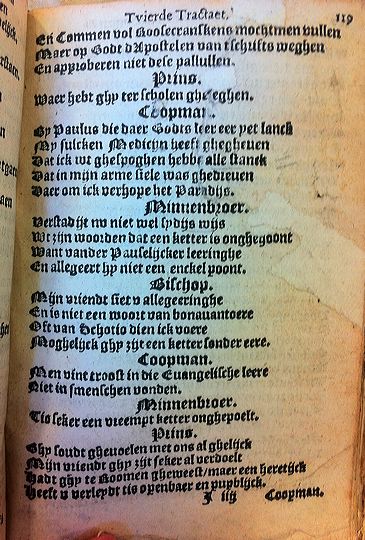 Tvierde Tractaet.
119
En Commen vol Roosecranskens mochtmen vullen
Maer op Godt d'Apostelen van tschrifts weghen
En approberen niet dese pallullen.
Prins.
Waer hebt ghy ter scholen ghelegen.
Coopman.
By Paulus die daer Godts leer eer yet lanck
My sulcken Medicijn heeft ghegheven
Dat ick wt ghespoghen hebbe alle stanck
Dat in mijn arme siele was ghedreven
Daer om ick verhope het Paradijs.
Minnenbroer.
Verstadijt nv niet wel sydijs wijs
Wt zijn woorden dat een ketter is onghegoont
Want vander Pauselijcker leeringhe
En allegeert hy niet een enckel poont.
Bischop.
Mijn vriendt siet v allegeeringhe
En is niet een woort van bonauantoere
Oft van Schotio dien ick voere
Moghelijck ghy zijt een ketter sonder eere.
Coopman.
Men vint troost in die Euangelische leere
Niet in smenschen vonden.
Minnenbroer.
Tis seker een vreempt ketter onghepoelt.
Prins.
Ghy soudt ghevoelen met ons al ghelijck
Mijn vriendt ghy zijt seker al verdoelt
Hadt ghy te Roomen gheweest/maer een heretijck
Heeft v verleydt tis openbaer en publijck.
J iij
Coopman.